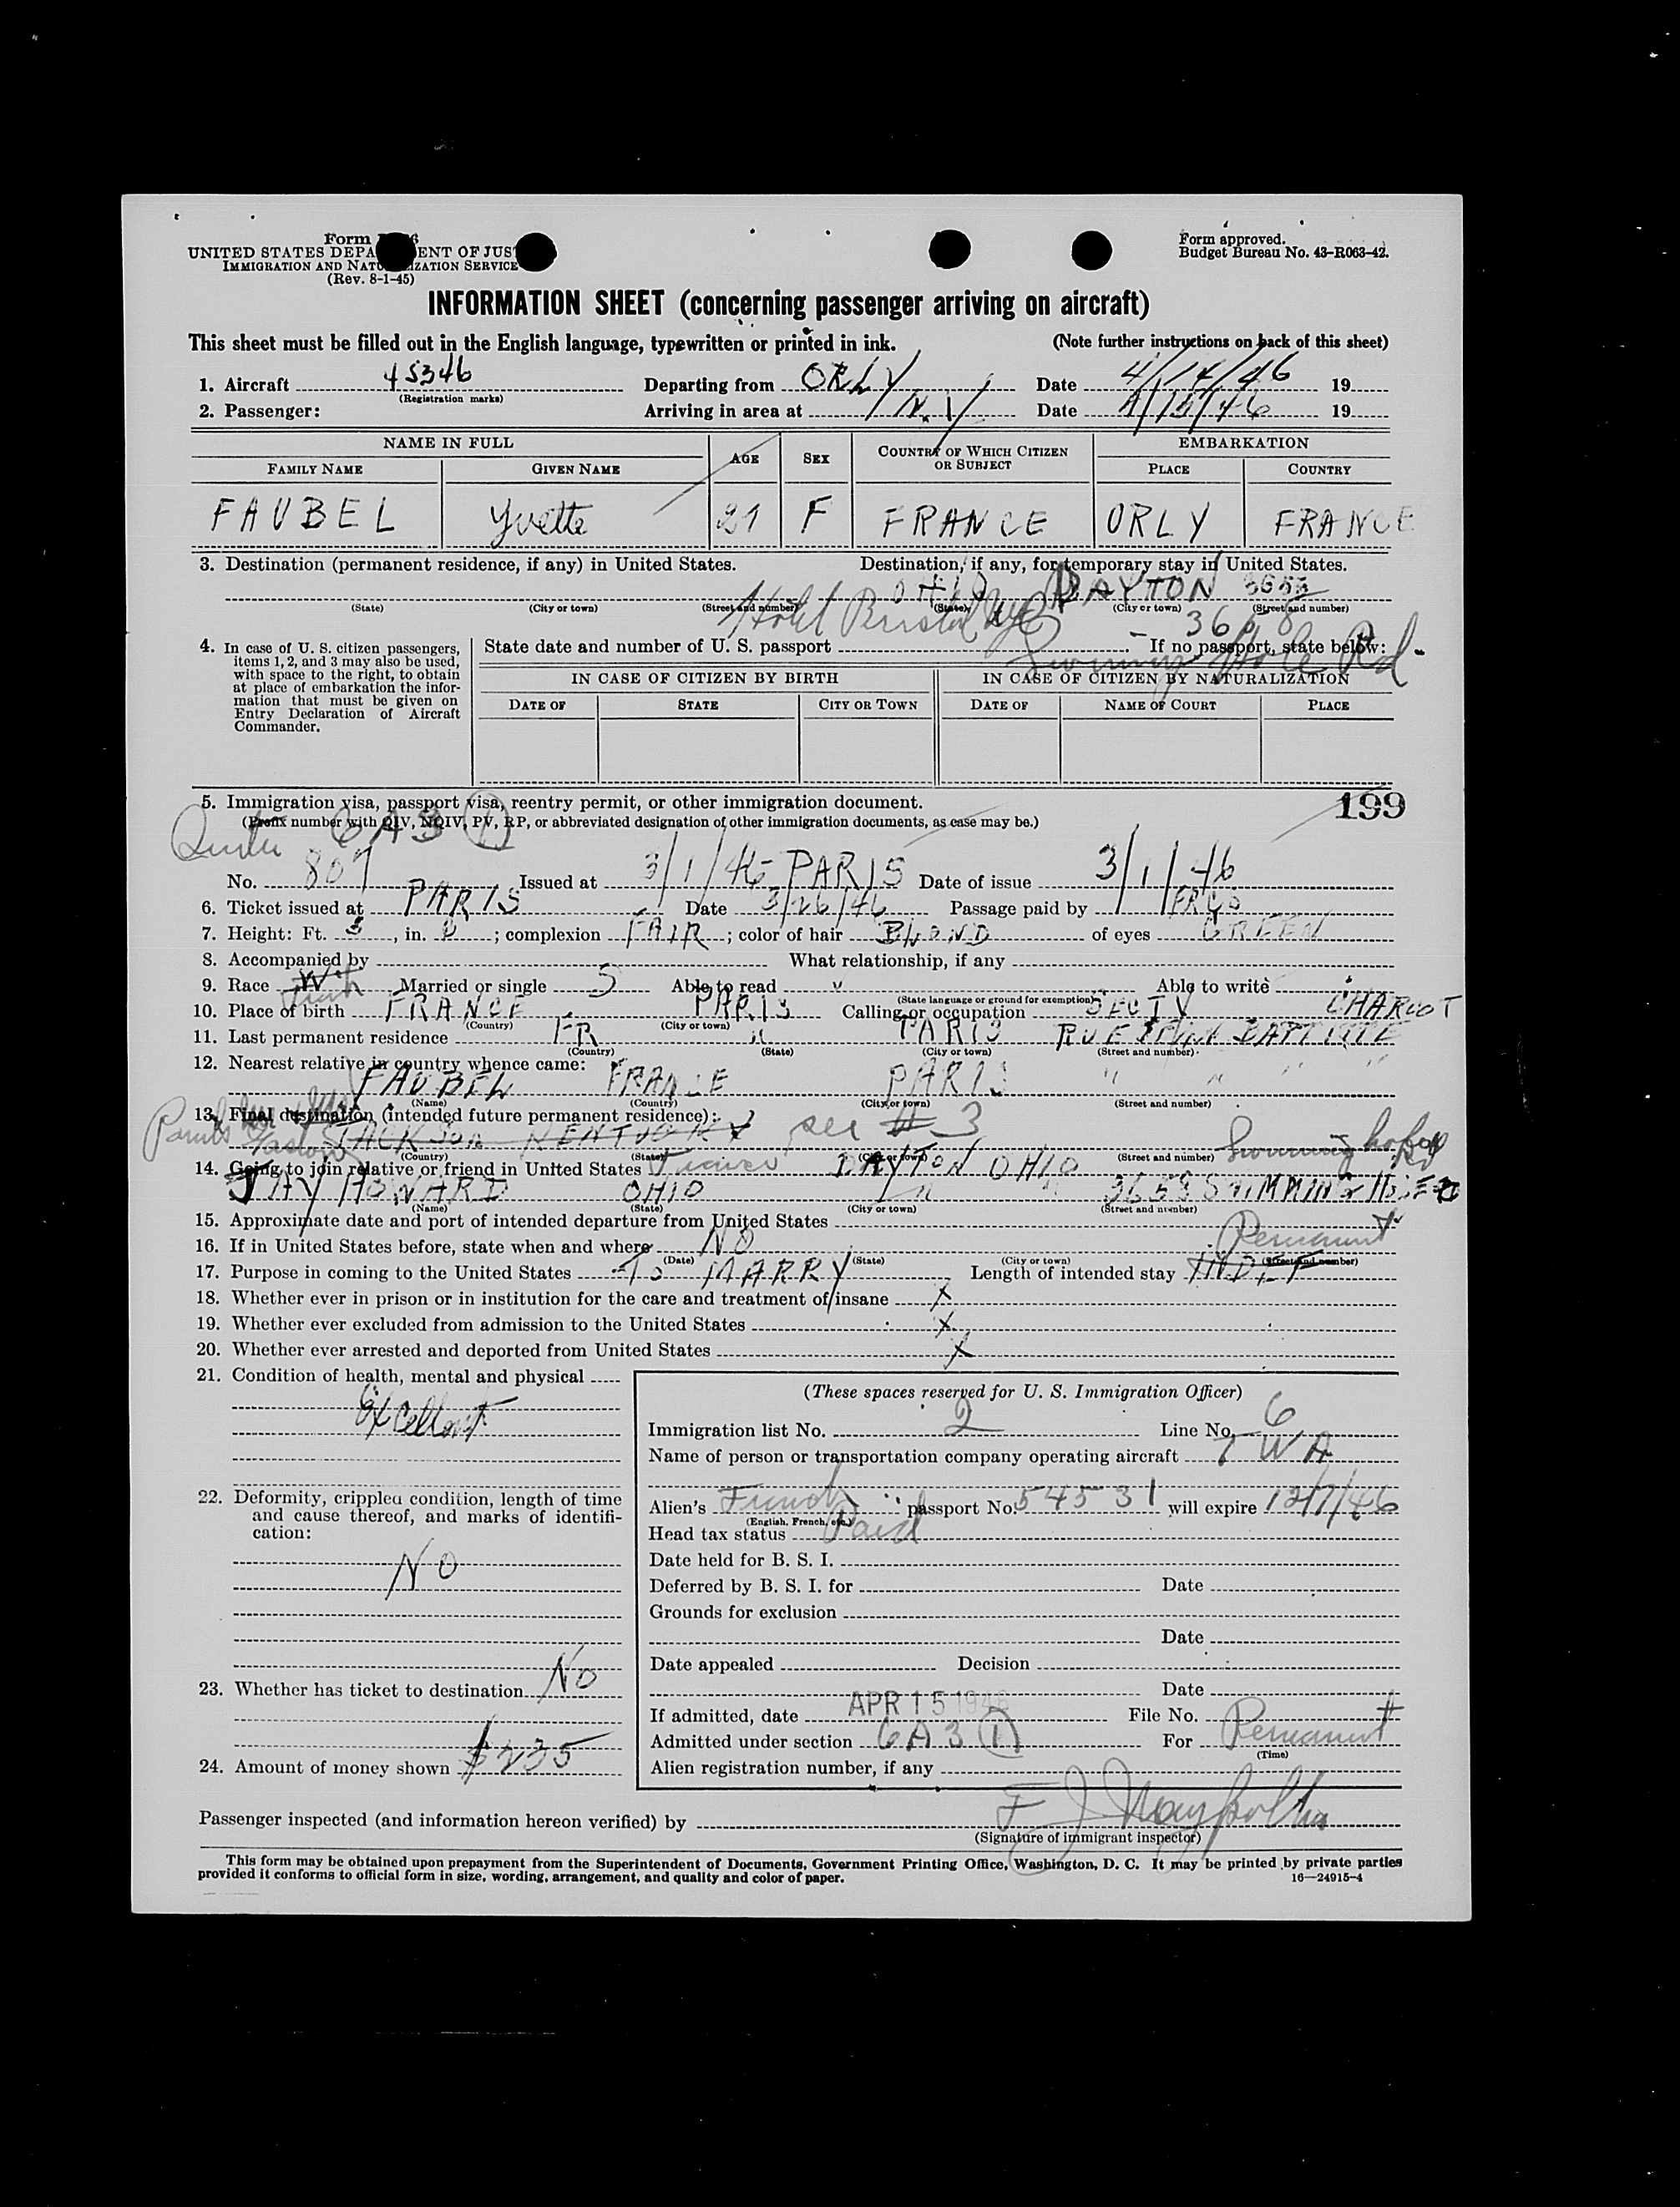 Form
UNITED STATES DEPA ENT OF JUS
IMMIGRATION AND NATU IZATION SERVICE
(Rev. 8-1-45)
Form approved.
Budget Bureau No. 43-R063-42.
INFORMATION SHEET (concerning passenger arriving on aircraft)
This sheet must be filled out in the English language, typewritten or printed in ink. (Note further instructions on back of this sheet)
1. Aircraft 45346 Departing from ORLY Date 4/14/46 19
(Registration marks)
2. Passenger: Arriving in area at N.Y Date 4/15/46 19
NAME IN FULL AGE SEX COUNTRY OF WHICH CITIZEN OR SUBJECT EMBARKATION
FAMILY NAME GIVEN NAME PLACE COUNTRY
FAUBEL Yvette 21 F FRANCE ORLY FRANCE
3. Destination (permanent residence, if any) in United States. Destination, if any, for temporary stay in United States.
OHIO DAYTON
(State) (City or town) (Street and number) (State) (City or town) (Street and number)
Hotel Bristol NYC 3658
Swimming Hole Rd.
4. In case of U. S. citizen passengers, items 1, 2, and 3 may also be used, with space to the right, to obtain at place of embarkation the information that must be given on Entry Declaration of Aircraft Commander.
State date and number of U. S. passport If no passport, state below:
IN CASE OF CITIZEN BY BIRTH IN CASE OF CITIZEN BY NATURALIZATION
DATE OF STATE CITY OR TOWN DATE OF NAME OF COURT PLACE
5. Immigration visa, passport visa, reentry permit, or other immigration document. 199
(Prefix number with QIV, NQIV, PV, RP, or abbreviated designation of other immigration documents, as case may be.)
6A3 (1)
No. 807 Issued at 3/1/46 PARIS Date of issue 3/1/46
6. Ticket issued at PARIS Date 3/26/46 Passage paid by
7. Height: Ft. , in. ; complexion FAIR ; color of hair BLOND of eyes GREEN
8. Accompanied by What relationship, if any
9. Race W Married or single S Able to read Able to write
(State language or ground for exemption)
10. Place of birth FRANCE PARIS Calling or occupation SECTY CHARCOT
(Country) (City or town)
11. Last permanent residence FR " PARIS RUE JEAN BAPTISTE
(Country) (State) (City or town) (Street and number)
12. Nearest relative in country whence came:
FAUBEL FRANCE PARIS " " " "
(Name) (Country) (City or town) (Street and number)
13. Final destination (intended future permanent residence):
JACKSON KENTUCKY see #3
(Country) (State) (City or town) (Street and number) Swimming
14. Going to join relative or friend in United States DAYTON OHIO
JAY HOWARD OHIO " " 3658 SWIMMING HOLE
(Name) (State) (City or town) (Street and number)
15. Approximate date and port of intended departure from United States
16. If in United States before, state when and where NO Permanent
(Date) (State) (City or town) (Street and number)
17. Purpose in coming to the United States To MARRY Length of intended stay INDEF
18. Whether ever in prison or in institution for the care and treatment of insane X
19. Whether ever excluded from admission to the United States X
20. Whether ever arrested and deported from United States X
21. Condition of health, mental and physical
Excellent
22. Deformity, crippled condition, length of time and cause thereof, and marks of identification:
NO
23. Whether has ticket to destination NO
24. Amount of money shown $235
(These spaces reserved for U. S. Immigration Officer)
Immigration list No. 2 Line No. 6
Name of person or transportation company operating aircraft TWA
Alien's French passport No. 54531 will expire 12/7/46
(English, French, etc.)
Head tax status Paid
Date held for B. S. I.
Deferred by B. S. I. for Date
Grounds for exclusion
Date
Date appealed Decision
Date
If admitted, date APR 15 1946 File No.
Admitted under section 6A3 (1) For Permanent
(Time)
Alien registration number, if any
Passenger inspected (and information hereon verified) by
(Signature of immigrant inspector)
This form may be obtained upon prepayment from the Superintendent of Documents, Government Printing Office, Washington, D. C. It may be printed by private parties
provided it conforms to official form in size, wording, arrangement, and quality and color of paper. 16—24915-4